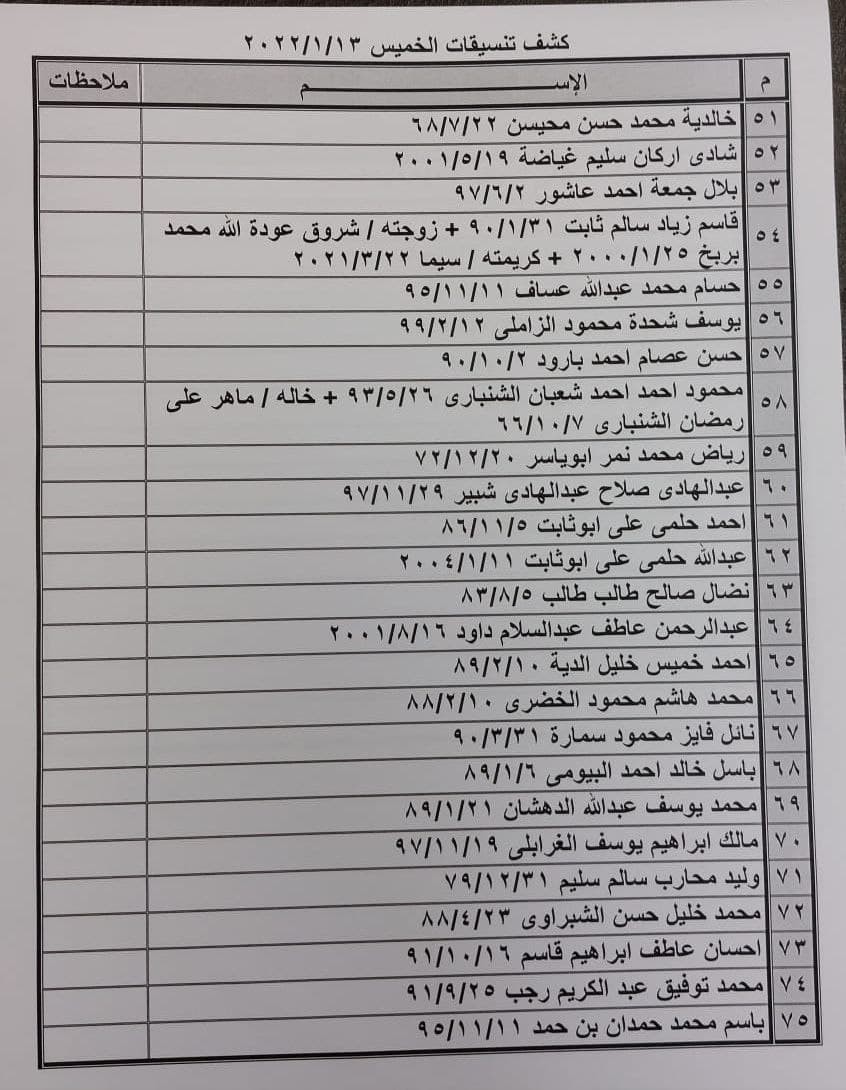 كشف تنسيقات الخميس ٢٠٢٢/١/١٣
م الإســـــــــــــــم ملاحظات
٥١ خالدية محمد حسن محيسن ٦٨/٧/٢٢
٥٢ شادى اركان سليم غياضة ٢٠٠١/٥/١٩
٥٣ بلال جمعة احمد عاشور ٩٧/٦/٢
٥٤ قاسم زياد سالم ثابت ٩٠/١/٣١ + زوجته / شروق عودة الله محمد
بربخ ٢٠٠٠/١/٢٥ + كريمته / سيما ٢٠٢١/٣/٢٢
٥٥ حسام محمد عبدالله عساف ٩٥/١١/١١
٥٦ يوسف شحدة محمود الزاملى ٩٩/٢/١٢
٥٧ حسن عصام احمد بارود ٩٠/١٠/٢
٥٨ محمود احمد احمد شعبان الشنبارى ٩٣/٥/٢٦ + خاله / ماهر على
رمضان الشنبارى ٦٦/١٠/٧
٥٩ رياض محمد نمر ابوياسر ٧٢/١٢/٢٠
٦٠ عبدالهادى صلاح عبدالهادى شبير ٩٧/١١/٢٩
٦١ احمد حلمى على ابوثابت ٨٦/١١/٥
٦٢ عبدالله حلمى على ابوثابت ٢٠٠٤/١/١١
٦٣ نضال صالح طالب طالب ٨٣/٨/٥
٦٤ عبدالرحمن عاطف عبدالسلام داود ٢٠٠١/٨/١٦
٦٥ احمد خميس خليل الدية ٨٩/٢/١٠
٦٦ محمد هاشم محمود الخضرى ٨٨/٢/١٠
٦٧ نائل فايز محمود سمارة ٩٠/٣/٣١
٦٨ باسل خالد احمد البيومى ٨٩/١/٦
٦٩ محمد يوسف عبدالله الدهشان ٨٩/١/٢١
٧٠ مالك ابراهيم يوسف الغرابلى ٩٧/١١/١٩
٧١ وليد محارب سالم سليم ٧٩/١٢/٣١
٧٢ محمد خليل حسن الشبراوى ٨٨/٤/٢٣
٧٣ احسان عاطف ابراهيم قاسم ٩١/١٠/١٦
٧٤ محمد توفيق عبد الكريم رجب ٩١/٩/٢٥
٧٥ باسم محمد حمدان بن حمد ٩٥/١١/١١